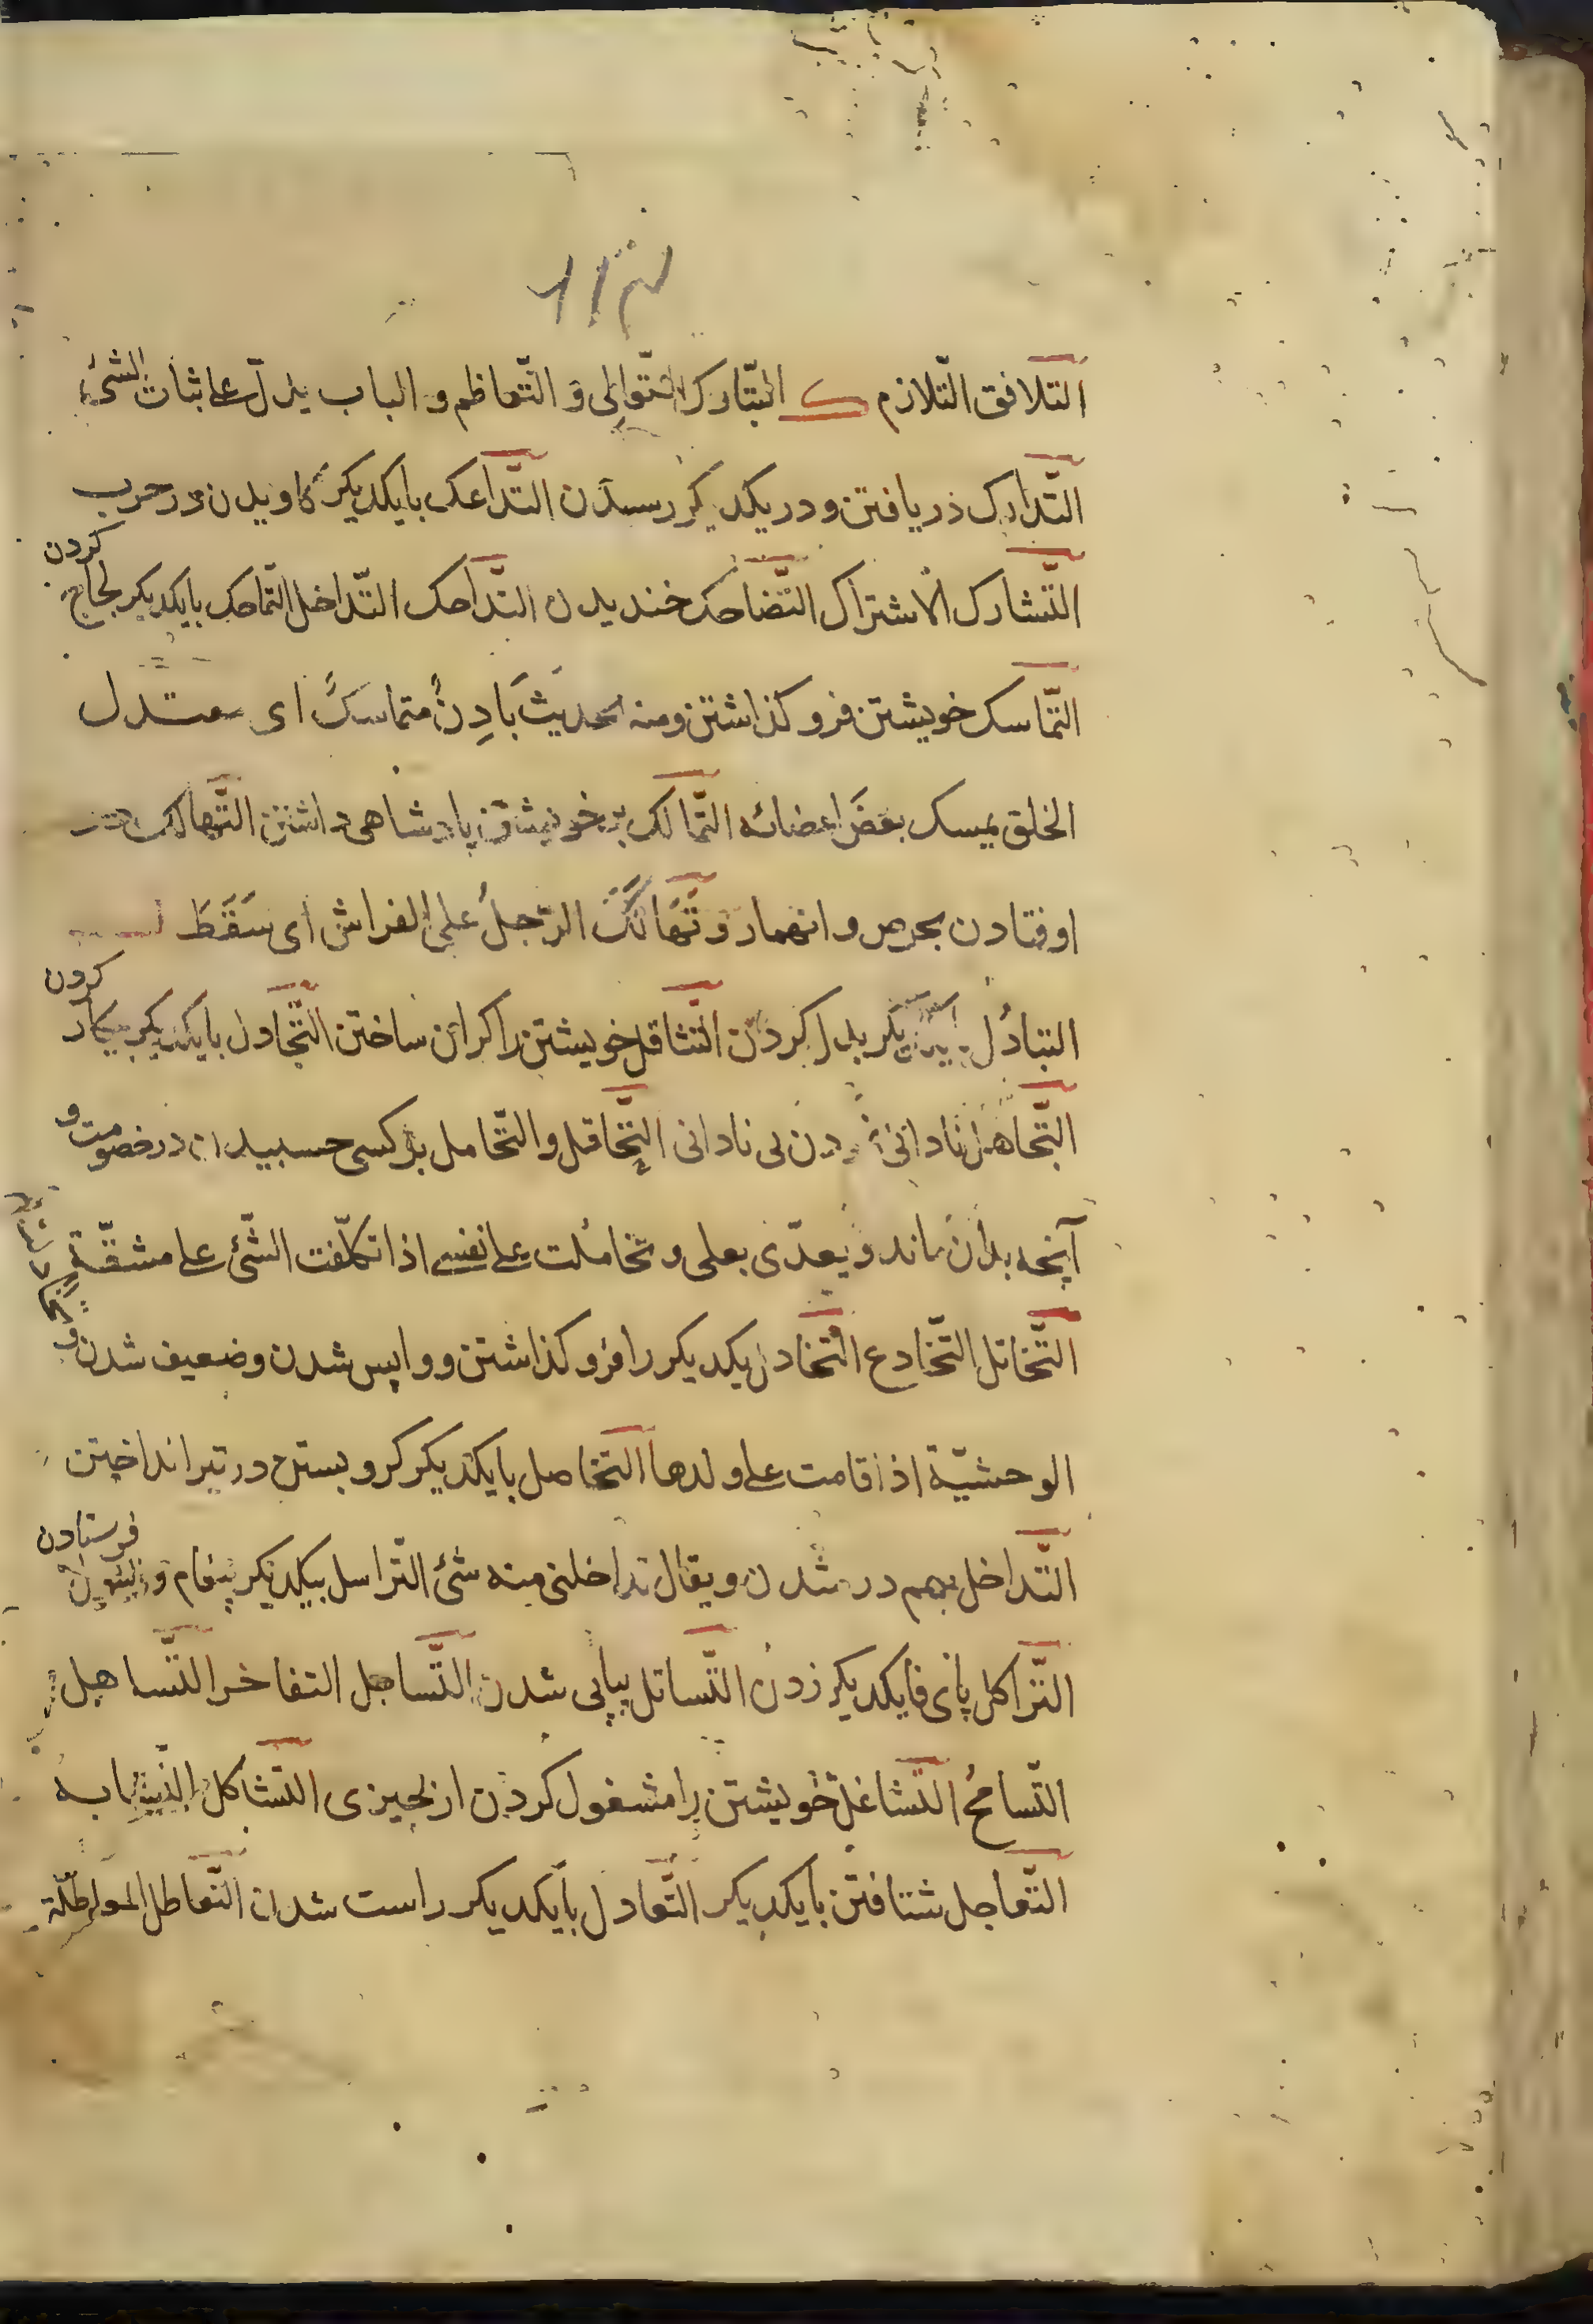 التلافق التّلازم ک التبّارک التّوالی و التّعاظم و الباب یدلّ علی ثبات الشئ
التّدارک دریافتن و در یکدیگر رسیدن التّداعک بایکدیکر کاویدن در حرب
التّشارک الاشتراک التّضاحک خندیدن التّداحک التّداخل التّماحک بایکدیکر لجاج کردن
التّماسک خویشتن فرو کذاشتن و منه الحدیث بَادِنٌ متماسکٌ ای معتدل
الخلق یمسک بعضَ اعضائه التّمالک بر خویشتن پادشاهی داشتن التّهالک در
اوفتادن بحرص و انهماد و تَهَالَکَ الرّجلُ علی الفراش ای سَقَطَ
التبادُل یکدیکر بدل کردن التّثاقل خویشتن را کران ساختن التّجادل بایکدیکر پیکار کردن
التّجاهل نادانی نمودن بی نادانی التّحاقل و التّحامل بر کسی حسبیدن در خصومت و
آنچه بدان ماند و یعدّی بعلی و تحاملت علی نفسی اذا تکلّفت الشّئ علی مشقّةٍ
التّخاتل التّخادع التّخاذل یکدیکر را فرو کذاشتن و واپس شدن و ضعیف شدن و
الوحشیّة اذا قامت علی ولدها التّخاصل بایکدیکر کرو بستن در تیر انداختن
التّداخل بهم در شدن و یقال تداخلنی منه شئ التّراسل بیکدیکر پیغام و رسول فرستادن
التّراکل پای فایکدیکر زدن التّساتل پیاپی شدن التّساجل التفاخر التّساهل
التّسامحُ التّشاغل خویشتن را مشغول کردن از چیزی التّشاکل التّشابه
التّعاجل شتافتن بایکدیکر التّعادل بایکدیکر راست شدن التّعاطل